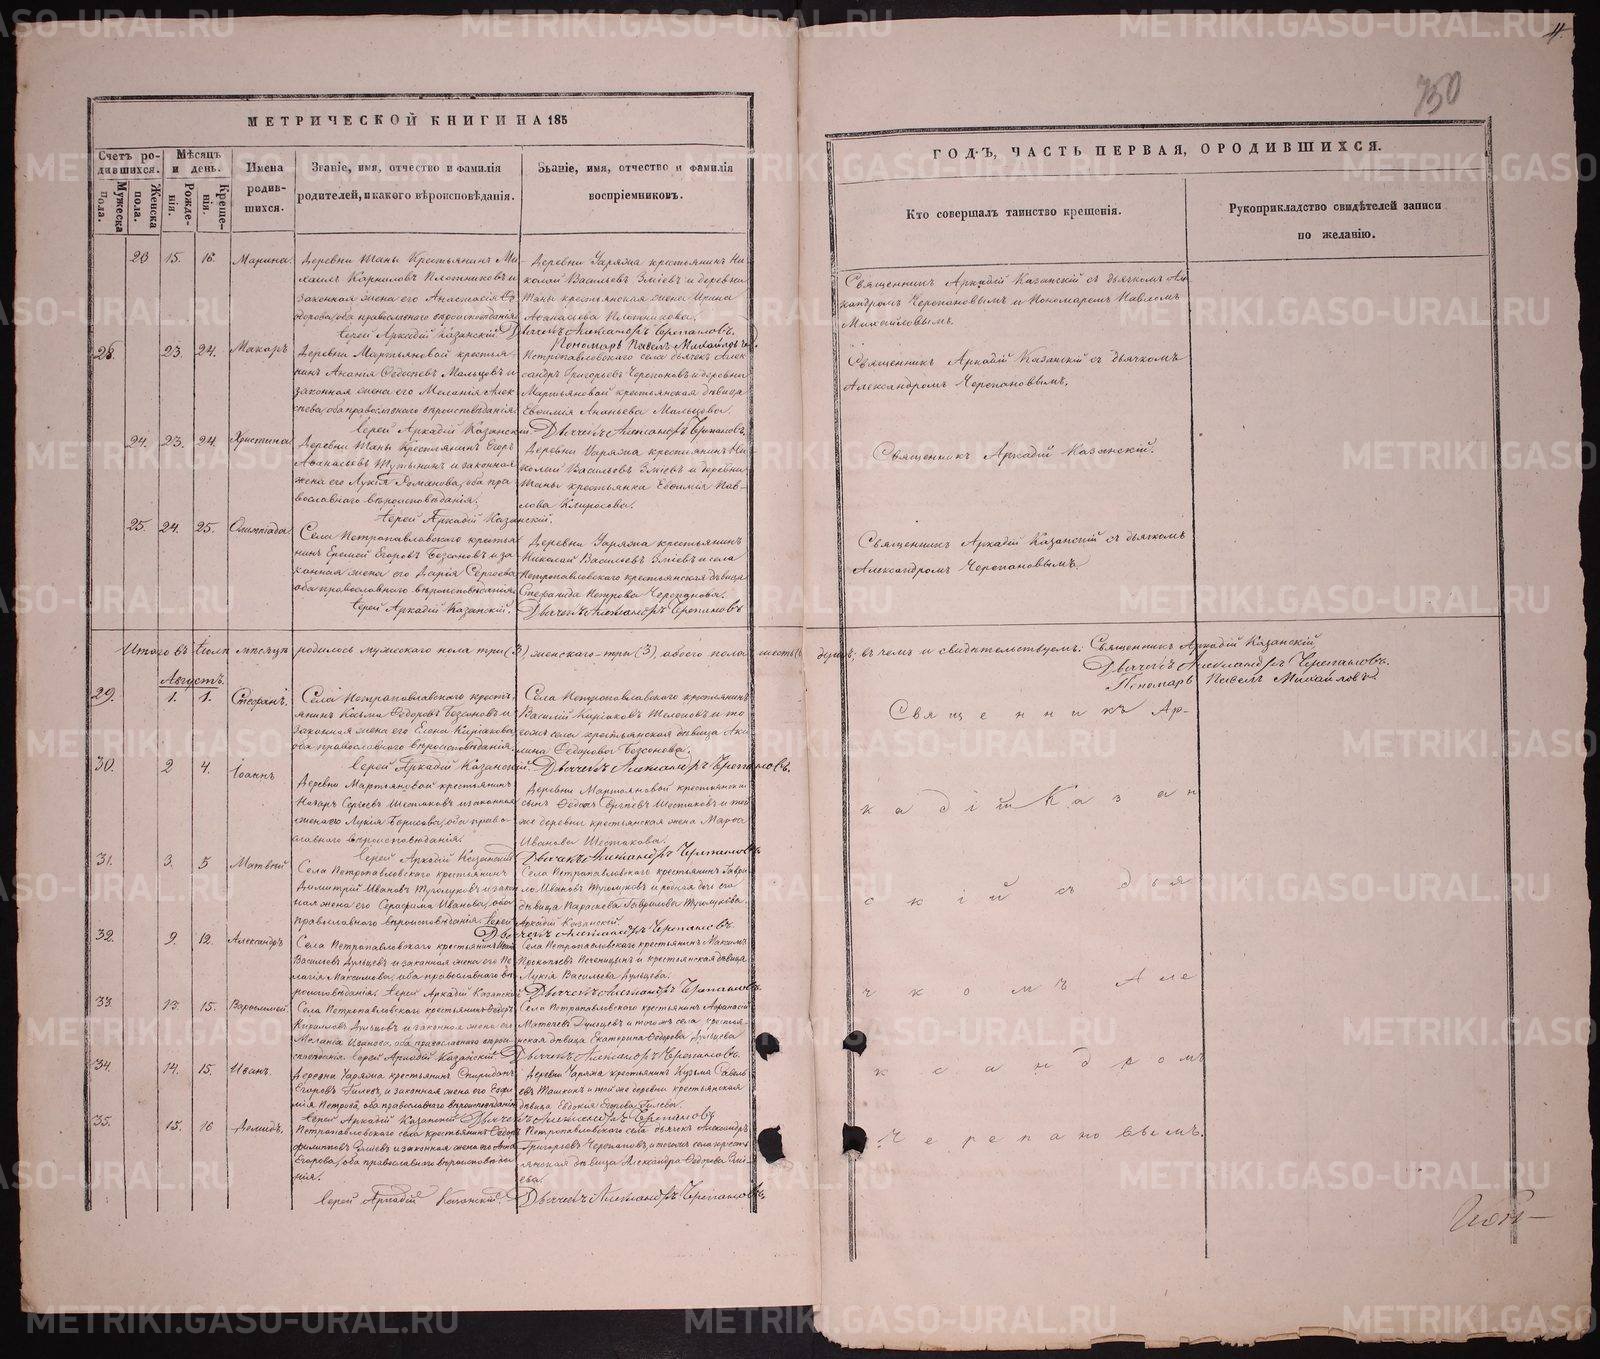 4.
750
МЕТРИЧЕСКОЙ КНИГИ НА 185
ГОДЪ, ЧАСТЬ ПЕРВАЯ, О РОДИВШИХСЯ.
Счетъ ро-
дившихся.
Мужеска
пола.
Женска
пола.
Мѣсяцъ
и день.
Рожде-
нія.
Креще-
нія.
Имена
родив-
шихся.
Званіе, имя, отчество и фамилія
родителей, и какого вѣроисповѣданія.
Званіе, имя, отчество и фамилія
воспріемниковъ.
Кто совершалъ таинство крещенія.
Рукоприкладство свидѣтелей записи
по желанію.
23 15. 16. Марина.
Деревни Шаны Крестьянинъ Ми-
хаилъ Карниловъ Плотниковъ и
законная жена его Анастасія Ѳе-
дорова, оба православнаго вѣроисповѣданія
Іерей Аркадій Казанскій.
Деревни Уаряжа крестьянинъ Ни-
колай Васильевъ Зміевъ и деревни
Шаны крестьянская жена Ирина
Аѳанасьева Плотникова.
Дьячекъ Александръ Черепановъ.
Пономарь Павелъ Михайловъ.
Священникъ Аркадій Казанскій съ дьячкомъ Але-
ксандромъ Черепановымъ и Пономаремъ Павломъ
Михайловымъ.
28. 23. 24. Макаръ
Деревни Мартьяновой крестья-
нинъ Ананія Ѳедосѣевъ Мальцовъ и
законная жена его Меланія Алек-
сѣева, оба православнаго вѣроисповѣданія
Іерей Аркадій Казанскій
Петропавловскаго села дьячекъ Алек-
сандръ Григорьевъ Черепановъ и деревни
Мартьяновой крестьянская дѣвица
Евѳимія Ананьева Мальцова.
Дьячекъ Александръ Черепановъ.
Священникъ Аркадій Казанскій съ дьячкомъ
Александромъ Черепановымъ.
24. 23. 24. Христина
Деревни Шаны Крестьянинъ Егоръ
Аѳанасьевъ и законная
жена его Лукія Романова, оба пра-
вославнаго вѣроисповѣданія.
Іерей Аркадій Казанскій.
Деревни Уаряжа крестьянинъ Ни-
колай Васильевъ Зміевъ и деревни
Шаны крестьянка Евѳимія Пав-
лова
Священникъ Аркадій Казанскій.
25. 24. 25. Олимпіада
Села Петропавловскаго крестья-
нинъ Еремей Егоровъ Безсоновъ и за-
конная жена его Дарія Сергѣева
оба православнаго вѣроисповѣданія
Іерей Аркадій Казанскій.
Деревни Уаряжа крестьянинъ
Николай Васильевъ Зміевъ и села
Петропавловскаго крестьянская дѣвица
Стефанида Петрова Черепанова.
Дьячекъ Александръ Черепановъ
Священникъ Аркадій Казанскій съ дьячкомъ
Александромъ Черепановымъ.
Итого въ Іюлѣ мѣсяцѣ родилось мужескаго пола три (3) женскаго три (3), обоего пола шесть душъ; въ чемъ и свидѣтельствуемъ: Священникъ Аркадій Казанскій
Дьячекъ Александръ Черепановъ.
Пономарь Павелъ Михайловъ.
Августъ.
29. 1. 1. Стефанъ.
Села Петропавловскаго кресть-
янинъ Козьма Ѳедоровъ Безсоновъ и
законная жена его Елена Киріакова
оба православнаго вѣроисповѣданія.
Іерей Аркадій Казанскій.
Села Петропавловскаго крестьянинъ
Василій Киріаковъ и то-
гожъ села крестьянская дѣвица Аку-
лина Ѳедорова Безсонова.
Дьячекъ Александръ Черепановъ.
30. 2 4. Іоаннъ
Деревни Мартьяновой крестьянинъ
Назаръ Сергѣевъ Шестаковъ и законная
жена его Лукія Борисова, оба право-
славнаго вѣроисповѣданія.
Іерей Аркадій Казанскій
Деревни Мартьяновой крестьянскій
сынъ Ѳедотъ Сергѣевъ Шестаковъ и той
же деревни крестьянская жена Марѳа
Иванова Шестакова.
Дьячекъ Александръ Черепановъ
31. 3. 5 Матвѣй
Села Петропавловскаго крестьянинъ
Димитрій Ивановъ и закон-
ная жена его Серафима Иванова, оба
православнаго вѣроисповѣданія. Іерей Аркадій Казанскій
Села Петропавловскаго крестьянинъ Гаври-
ло Ивановъ и родная дочь его
дѣвица Параскева Гаврилова
Дьячекъ Александръ Черепановъ.
32. 9. 12. Александръ
Села Петропавловскаго крестьянинъ
Васильевъ Дульцевъ и законная жена его Пе-
лагія Максимова, оба православнаго вѣ-
роисповѣданія. Іерей Аркадій Казанскій
Села Петропавловскаго крестьянинъ Максимъ
Прокопьевъ Печеницынъ и крестьянская дѣвица
Лукія Васильева Дульцева.
Дьячекъ Александръ Черепановъ
33. 13. 15. Варѳоломей.
Села Петропавловскаго крестьянинъ Ѳедоръ
Кириловъ Дульцовъ и законная жена его
Меланія Иванова, оба православнаго вѣрои-
сповѣданія. Іерей Аркадій Казанскій.
Села Петропавловскаго крестьянинъ Аѳанасій
Матвеевъ Дульцевъ и тогожъ села крестья-
нская дѣвица Екатерина Ѳедорова Дульцева
Дьячекъ Александръ Черепановъ.
34. 14. 15. Иванъ.
Деревни Уаряжа крестьянинъ Спиридонъ
Егоровъ Гилевъ, и законная жена его Евфи-
мія Петрова, оба православнаго вѣроисповѣданія
Іерей Аркадій Казанскій
Деревни Уаряжа крестьянинъ Кузьма Савель-
евъ Ташкинъ и той же деревни крестьянская
дѣвица Евдокія Егорова Гилева.
Дьячекъ Александръ Черепановъ
35. 15. 16 Діомидъ.
Петропавловскаго села крестьянинъ Ѳедоръ
Филиповъ Зміевъ и законная жена его Анна
Егорова, оба православнаго вѣроисповѣда-
нія.
Іерей Аркадій Казанскій.
Петропавловскаго села дьячекъ Александръ
Григорьевъ Черепановъ, и тогожъ села кресть-
янская дѣвица Александра Ѳедорова Змі-
ева.
Дьячекъ Александръ Черепановъ.
Священникъ Ар-
кадій Казан
скій съ дья
чкомъ Але
ксандромъ
Черепановымъ.
METRIKI.GASO-URAL.RU